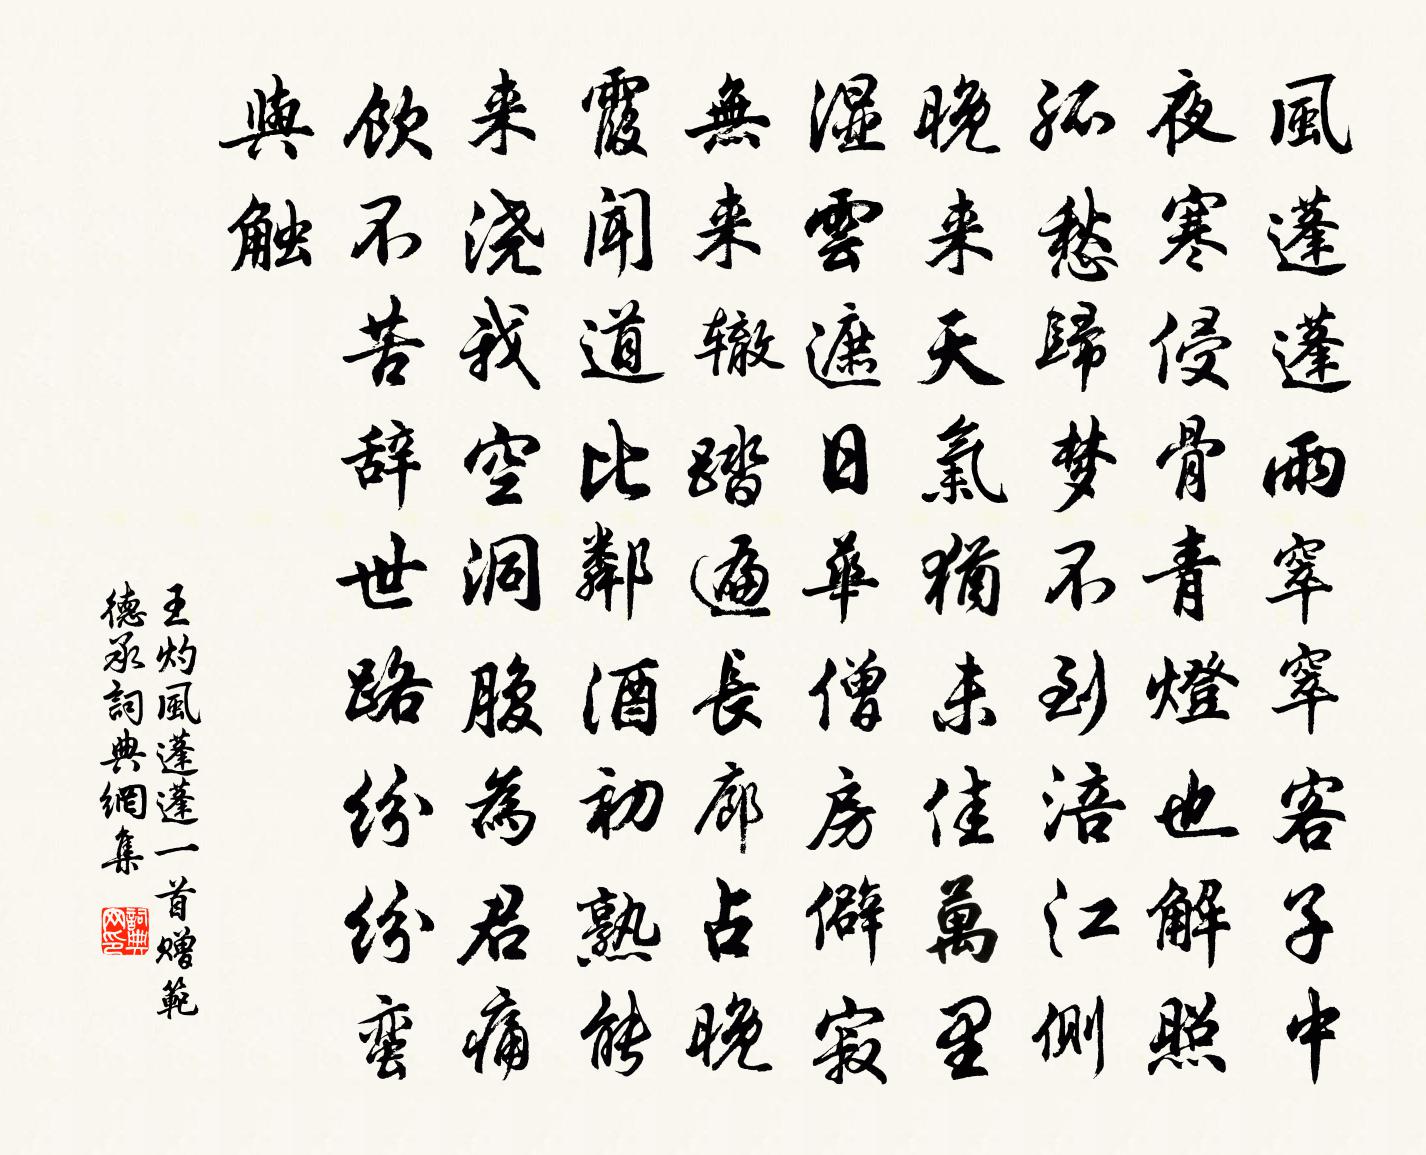 風蓬蓬雨窣窣客子中
夜寒侵骨青燈也解照
孤愁歸梦不到涪江側
晚来天氣猶未佳萬里
湿雲遮日華僧房僻寂
無来辙踏遍長廊占晚
霞聞道比鄰酒初熟能
来浇我空洞腹為君痛
飲不苦辞世路纷纷蛮
與触
王灼風蓬蓬一首赠範
德承詞典網集
詞典网印